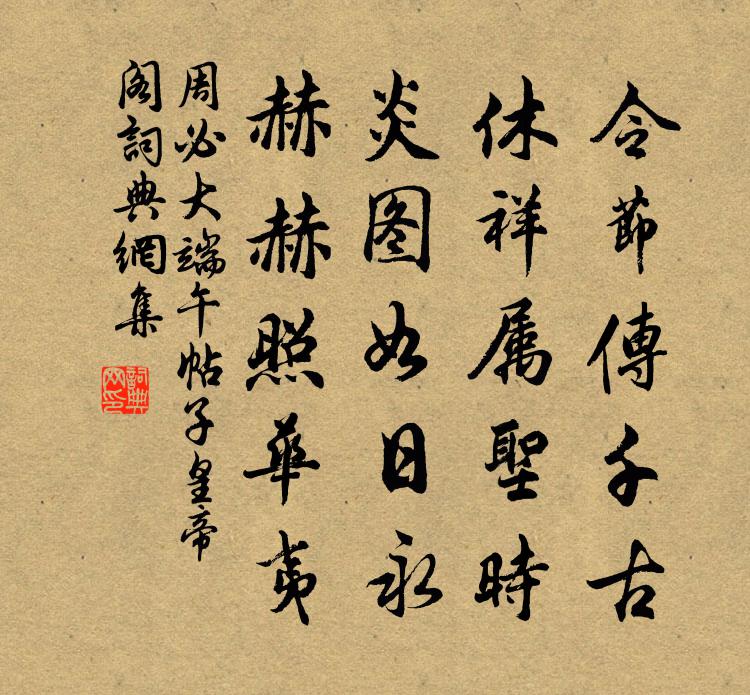 令節傳千古
休祥属聖時
炎图如日永
赫赫照華夷
周必大端午帖子皇帝
阁詞典網集
詞典网印